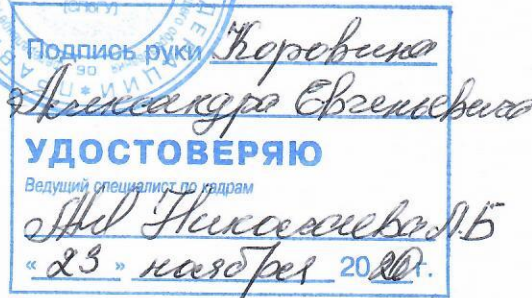 (СПбГУ)
Подпись руки Коровина
Александра Евгеньевича
УДОСТОВЕРЯЮ
Ведущий специалист по кадрам
Николаева Л.Б
« 23 » ноября 2020г.